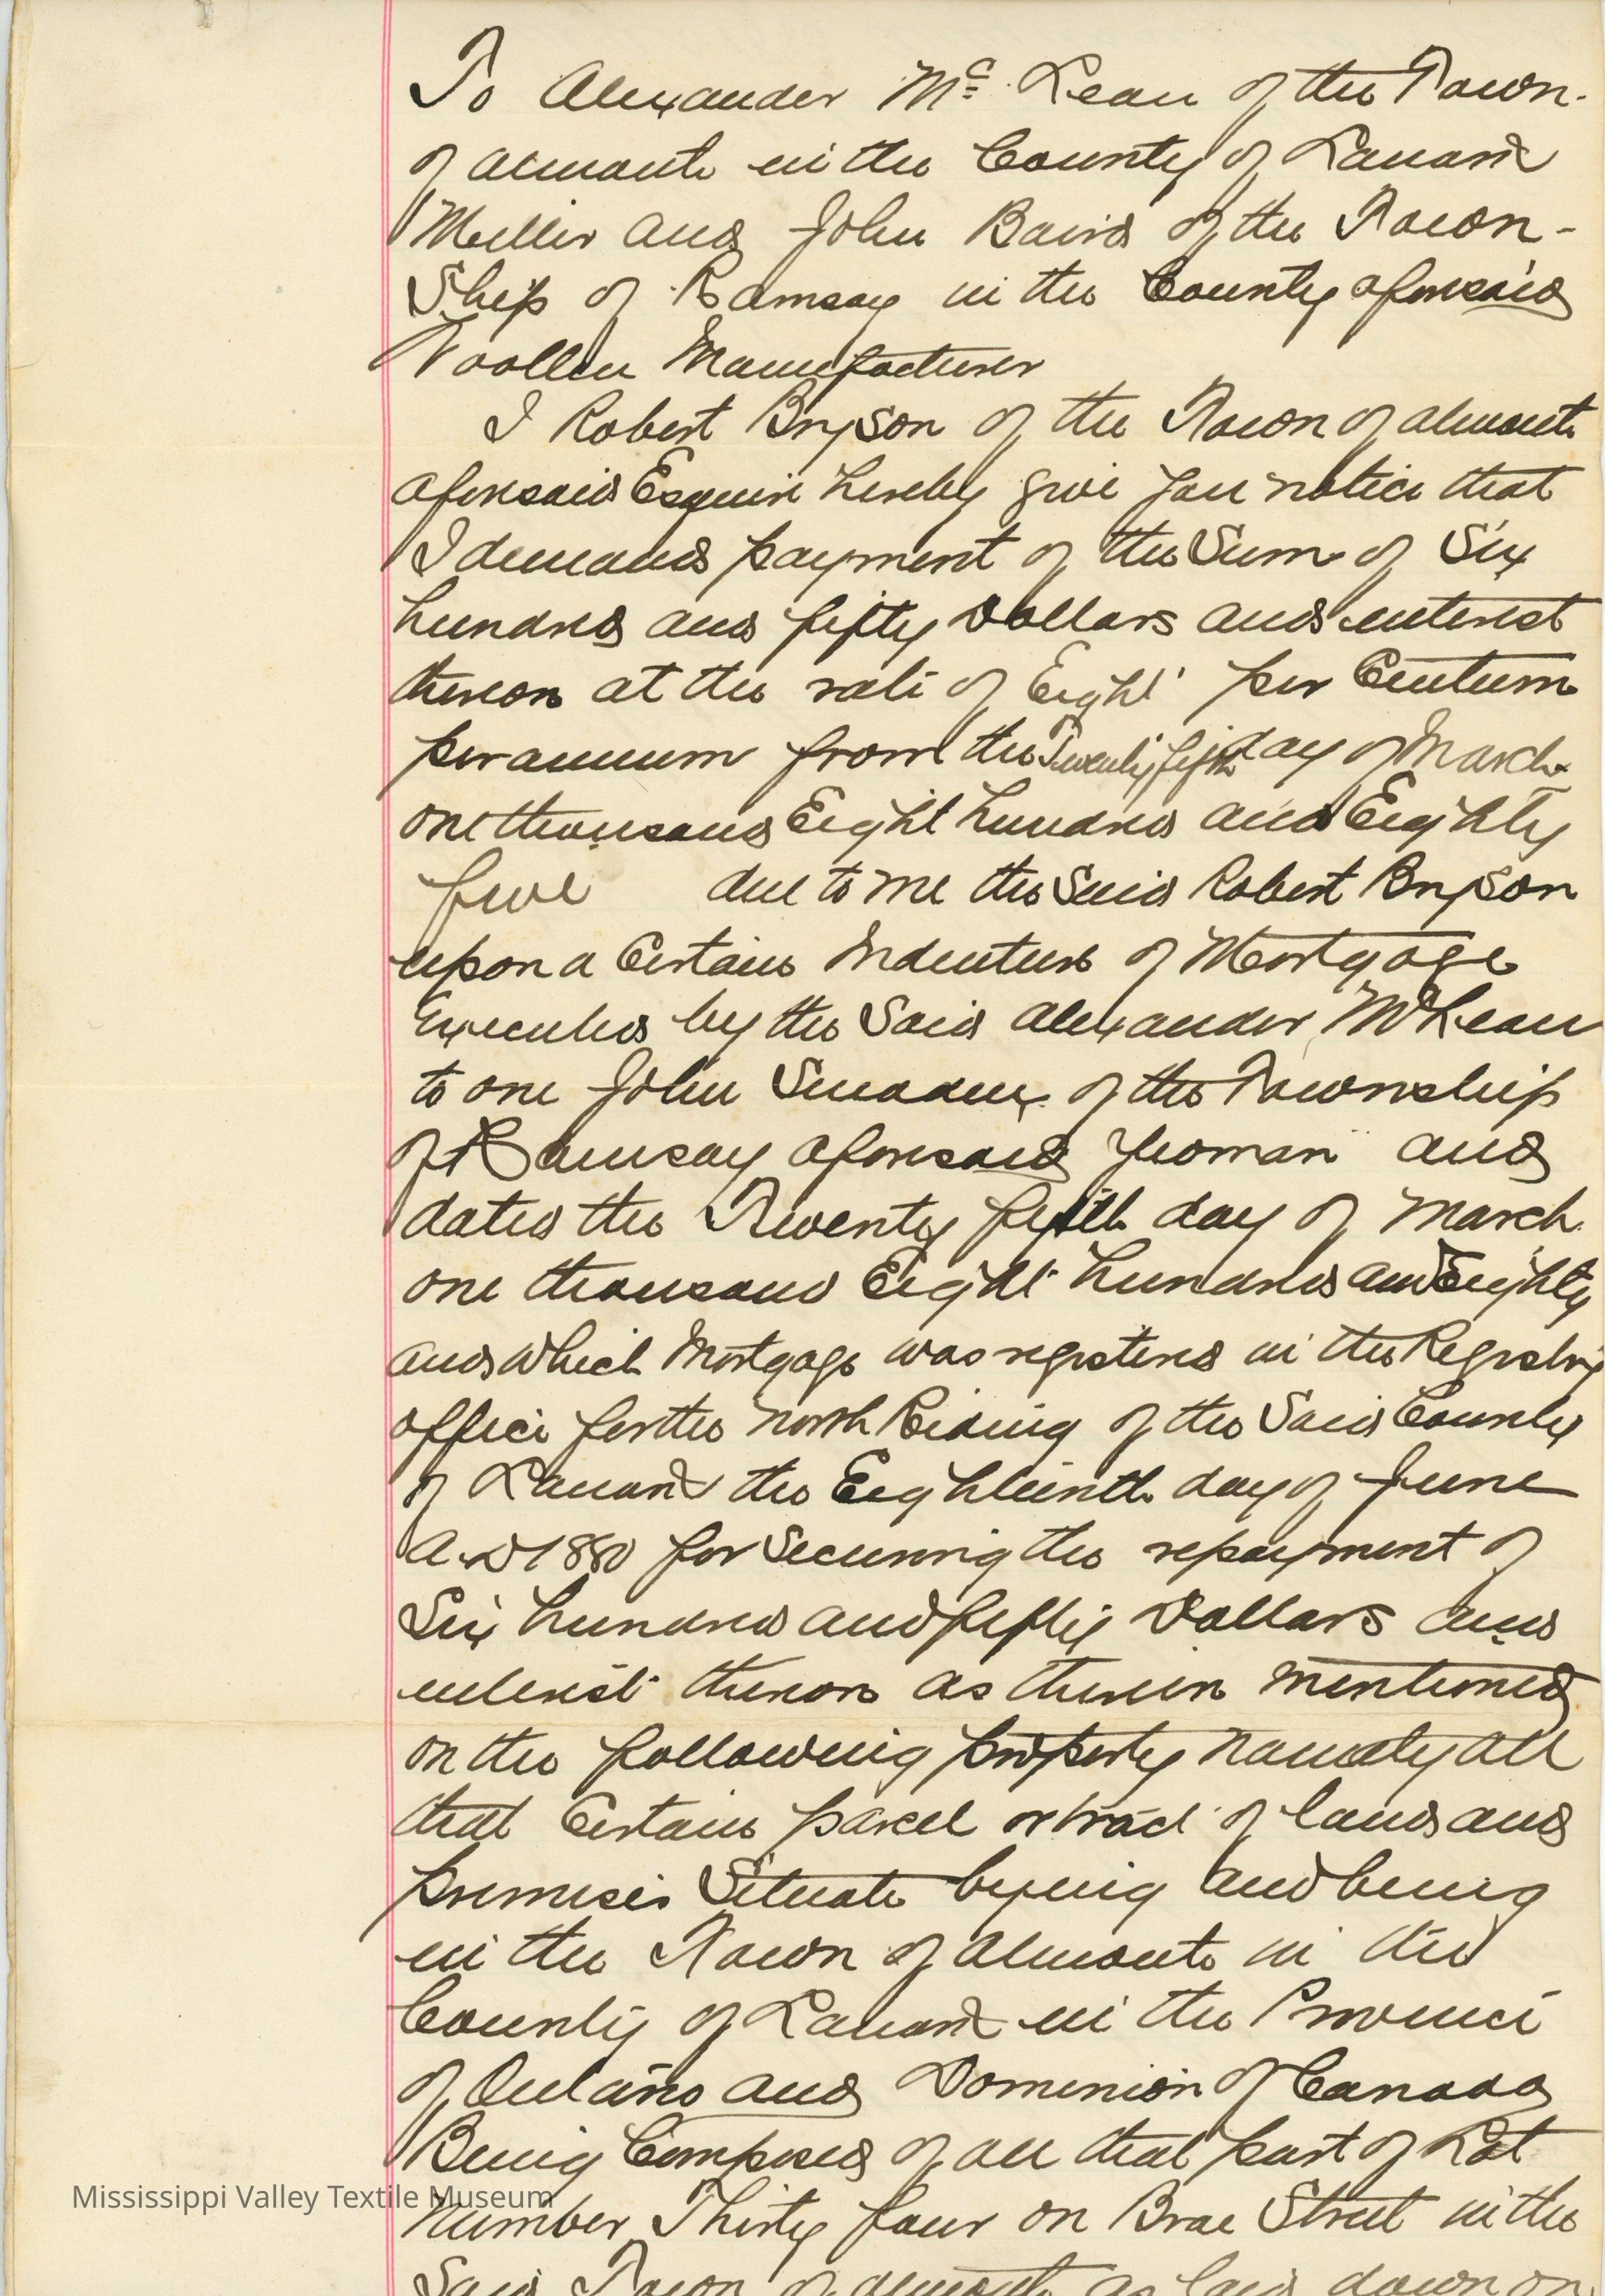 To Alexander Mc Lean of the Town
of Almonte in the County of Lanark
Miller and John Baird of the Town-
Ship of Ramsay in the County aforesaid
Woollen Manufacturer
I Robert Bryson of the Town of Almonte
aforesaid Esquire hereby give you notice that
I demand payment of the Sum of Six
hundred and fifty Dollars and interest
thereon at the rate of Eight per Centum
per annum from the Twenty fifth day of March
one thousand Eight hundred and Eighty
five due to me the Said Robert Bryson
upon a Certain Indenture of Mortgage
Executed by the Said Alexander McLean
to one John of the Township
of Ramsay aforesaid Yeoman and
dated the Twenty fifth day of March
one thousand Eight hundred and Eighty
and which Mortgage was registered in the Registry
office for the North Riding of the Said County
of Lanark the Eighteenth day of June
A.D 1880 for Securing the repayment of
Six hundred and fifty Dollars and
interest thereon as therein mentioned
on the following property namely all
that Certain parcel or tract of land and
premises Situate lying and being
in the Town of Almonte in the
County of Lanark in the Province
of Ontario and Dominion of Canada
Being Composed of all that part of Lot
Number Thirty four on Brae Street in the
Said Town of Almonte as laid down on
Mississippi Valley Textile Museum